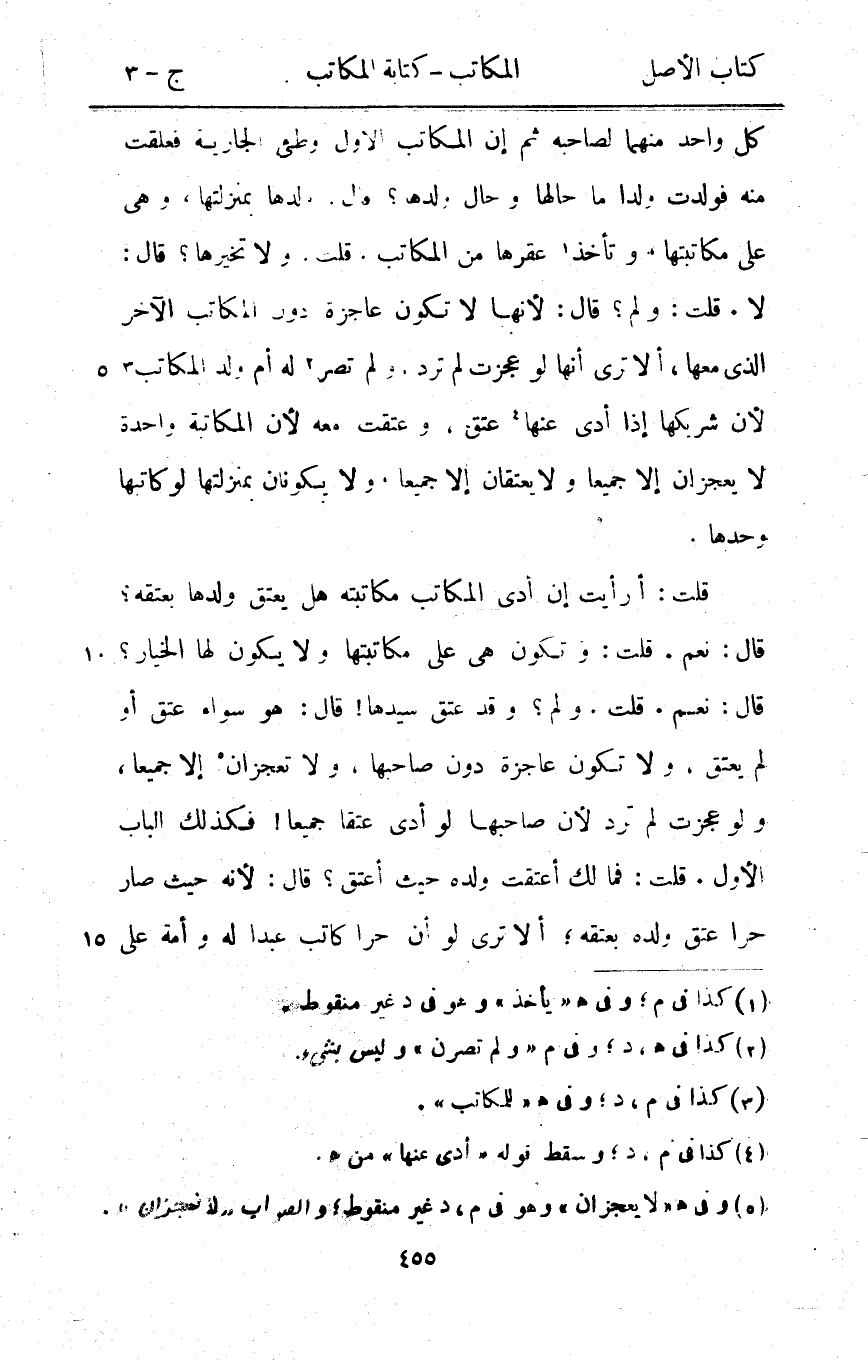 كتاب الأصل المكاتب - كتابة المكاتب ج - ٣
كل واحد منهما لصاحبه ثم إن المكاتب الأول وطئ الجارية فعلقت
منه فولدت ولدا ما حالها و حال ولدها؟ قال: ولدها بمنزلتها، و هى
على مكاتبتها، و تأخذ١ عقرها من المكاتب. قلت: و لا تخيرها؟ قال:
لا. قلت: و لم؟ قال: لأنها لا تكون عاجزة دون المكاتب الآخر
الذى معها، ألا ترى أنها لو عجزت لم ترد. و لم تصر٢ له أم ولد المكاتب٣ ٥
لأن شريكها إذا أدى عنها٤ عتق، و عتقت معه لأن المكاتبة واحدة
لا يعجزان إلا جميعا و لا يعتقان إلا جميعا. و لا يكونان بمنزلتها لو كاتبها
وحدها.
قلت: أرأيت إن أدى المكاتب مكاتبته هل يعتق ولدها بعتقه؟
قال: نعم. قلت: و تكون هى على مكاتبتها و لا يكون لها الخيار؟ ١٠
قال: نعم. قلت. و لم؟ و قد عتق سيدها! قال: هو سواء عتق أو
لم يعتق، و لا تكون عاجزة دون صاحبها، و لا تعجزان٥ إلا جميعا،
و لو عجزت لم ترد لأن صاحبها لو أدى عتقا جميعا! فكذلك الباب
الأول. قلت: فما لك أعتقت ولده حيث أعتق؟ قال: لأنه حيث صار
حرا عتق ولده بعتقه؛ ألا ترى لو أن حرا كاتب عبدا له و أمة على ١٥
(١) كذا فى م؛ و فى ه «يأخذ» و هو فى د غير منقوط.
(٢) كذا فى ه، د؛ و فى م «و لم تصرن» و ليس بشىء.
(٣) كذا فى م، د؛ و فى ه «للمكاتب».
(٤) كذا فى م، د؛ و سقط قوله «أدى عنها» من ه.
(٥) و فى ه «لا يعجزان» و هو فى م، د غير منقوط؛ و الصواب «لا تعجزان».
٤٥٥